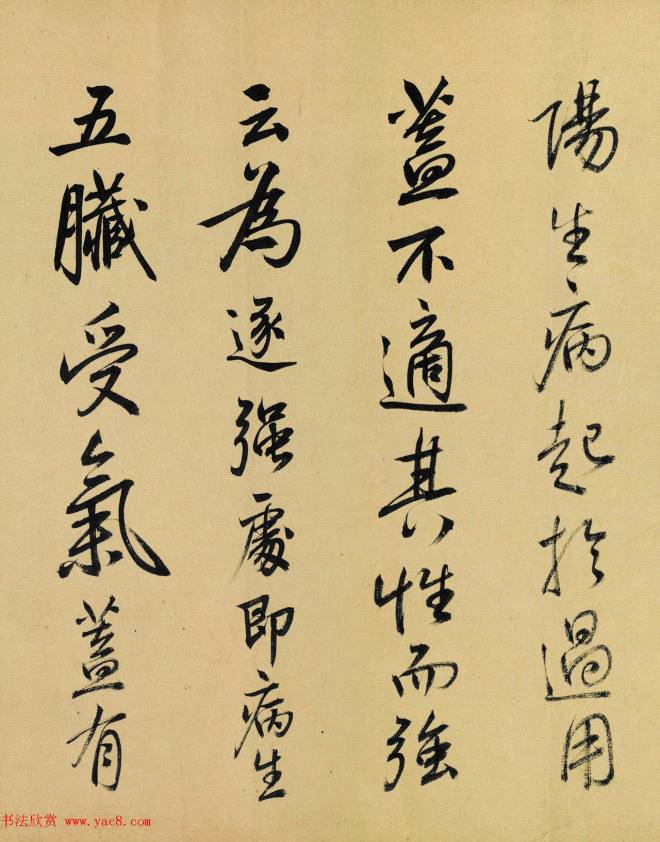 陽生病起於過用
蓋不適其性而強
云為逐強處即病生
五臟受氣蓋有
书法欣赏 www.yac8.com